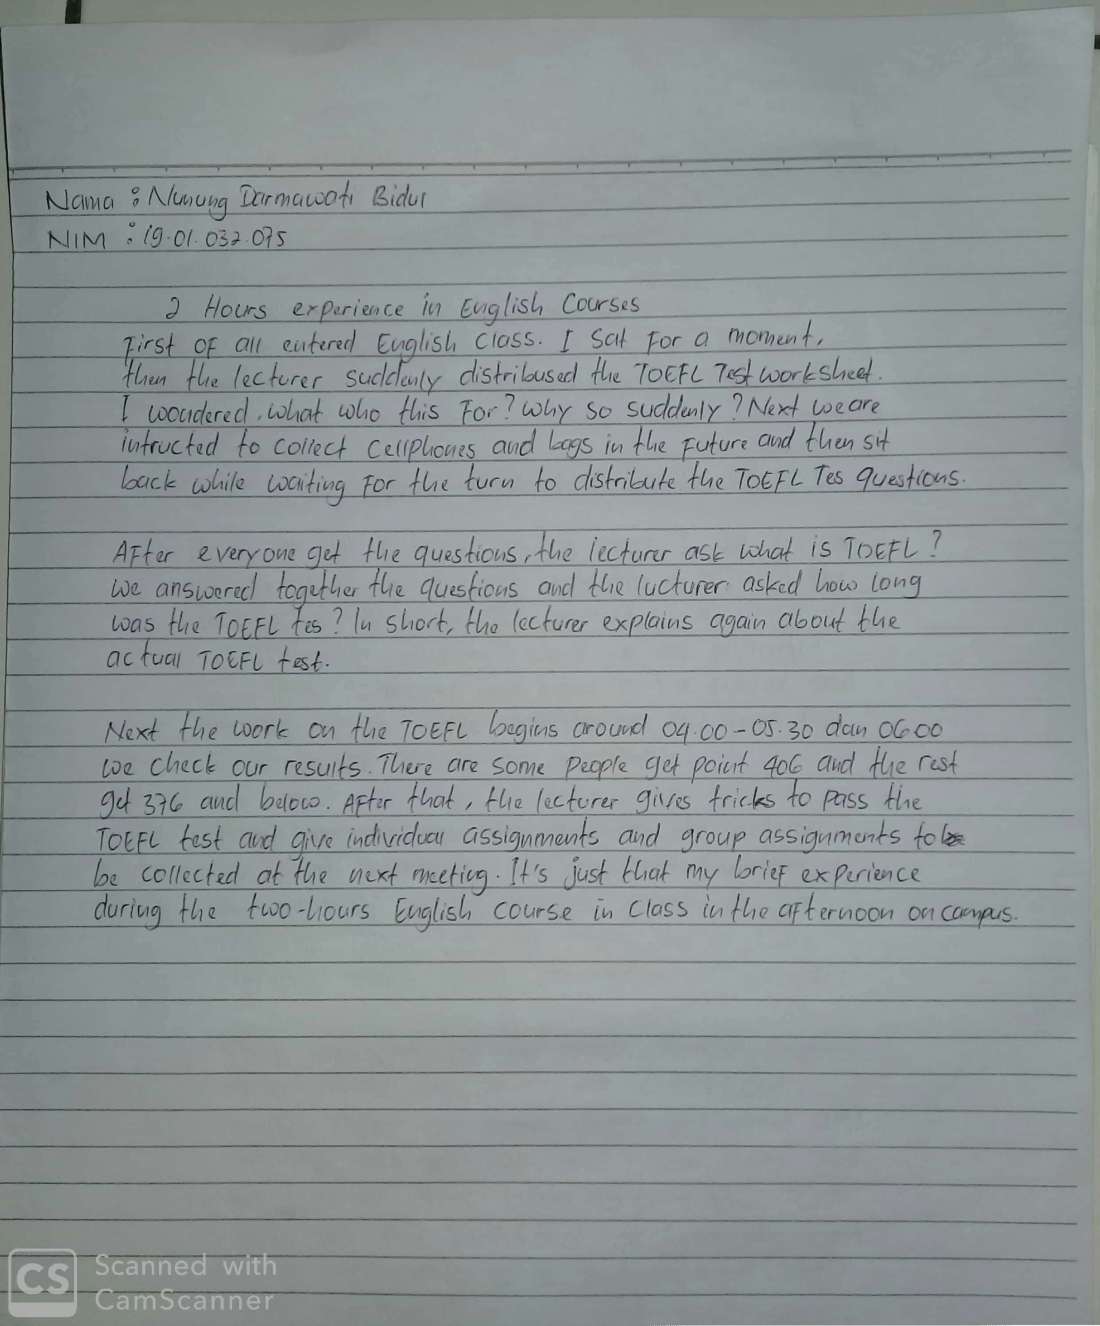 Nama : Nunung Darmawati Bidul
NIM : 19.01.032.075
2 Hours experience in English Courses
First of all entered English class. I sat for a moment,
then the lecturer suddenly distribused the TOEFL Test worksheet.
I woundered, what who this for? why so suddenly? Next we are
intructed to collect cellphones and bags in the future and then sit
back while waiting for the turn to distribute the TOEFL Tes questions.
After everyone get the questions, the lecturer ask what is TOEFL?
we answered together the questions and the lucturer asked how long
was the TOEFL tes? In short, the lecturer explains again about the
actual TOEFL test.
Next the work on the TOEFL begins around 04.00 - 05.30 dan 06.00
we check our results. There are some people get point 406 and the rest
get 376 and below. After that, the lecturer gives tricks to pass the
TOEFL test and give individual assignments and group assignments to
be collected at the next meeting. It's just that my brief experience
during the two-hours English course in class in the afternoon on campus.
CS Scanned with
CamScanner